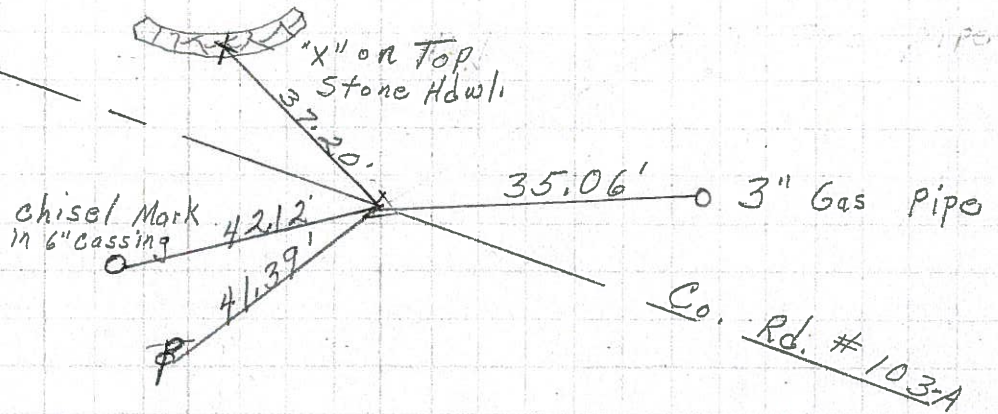 "x" on Top
Stone Hdwl.
37.20'
35.06'
3" Gas Pipe
chisel Mark
in 6" Cassing
42.12'
41.39'
Co. Rd. # 103-A